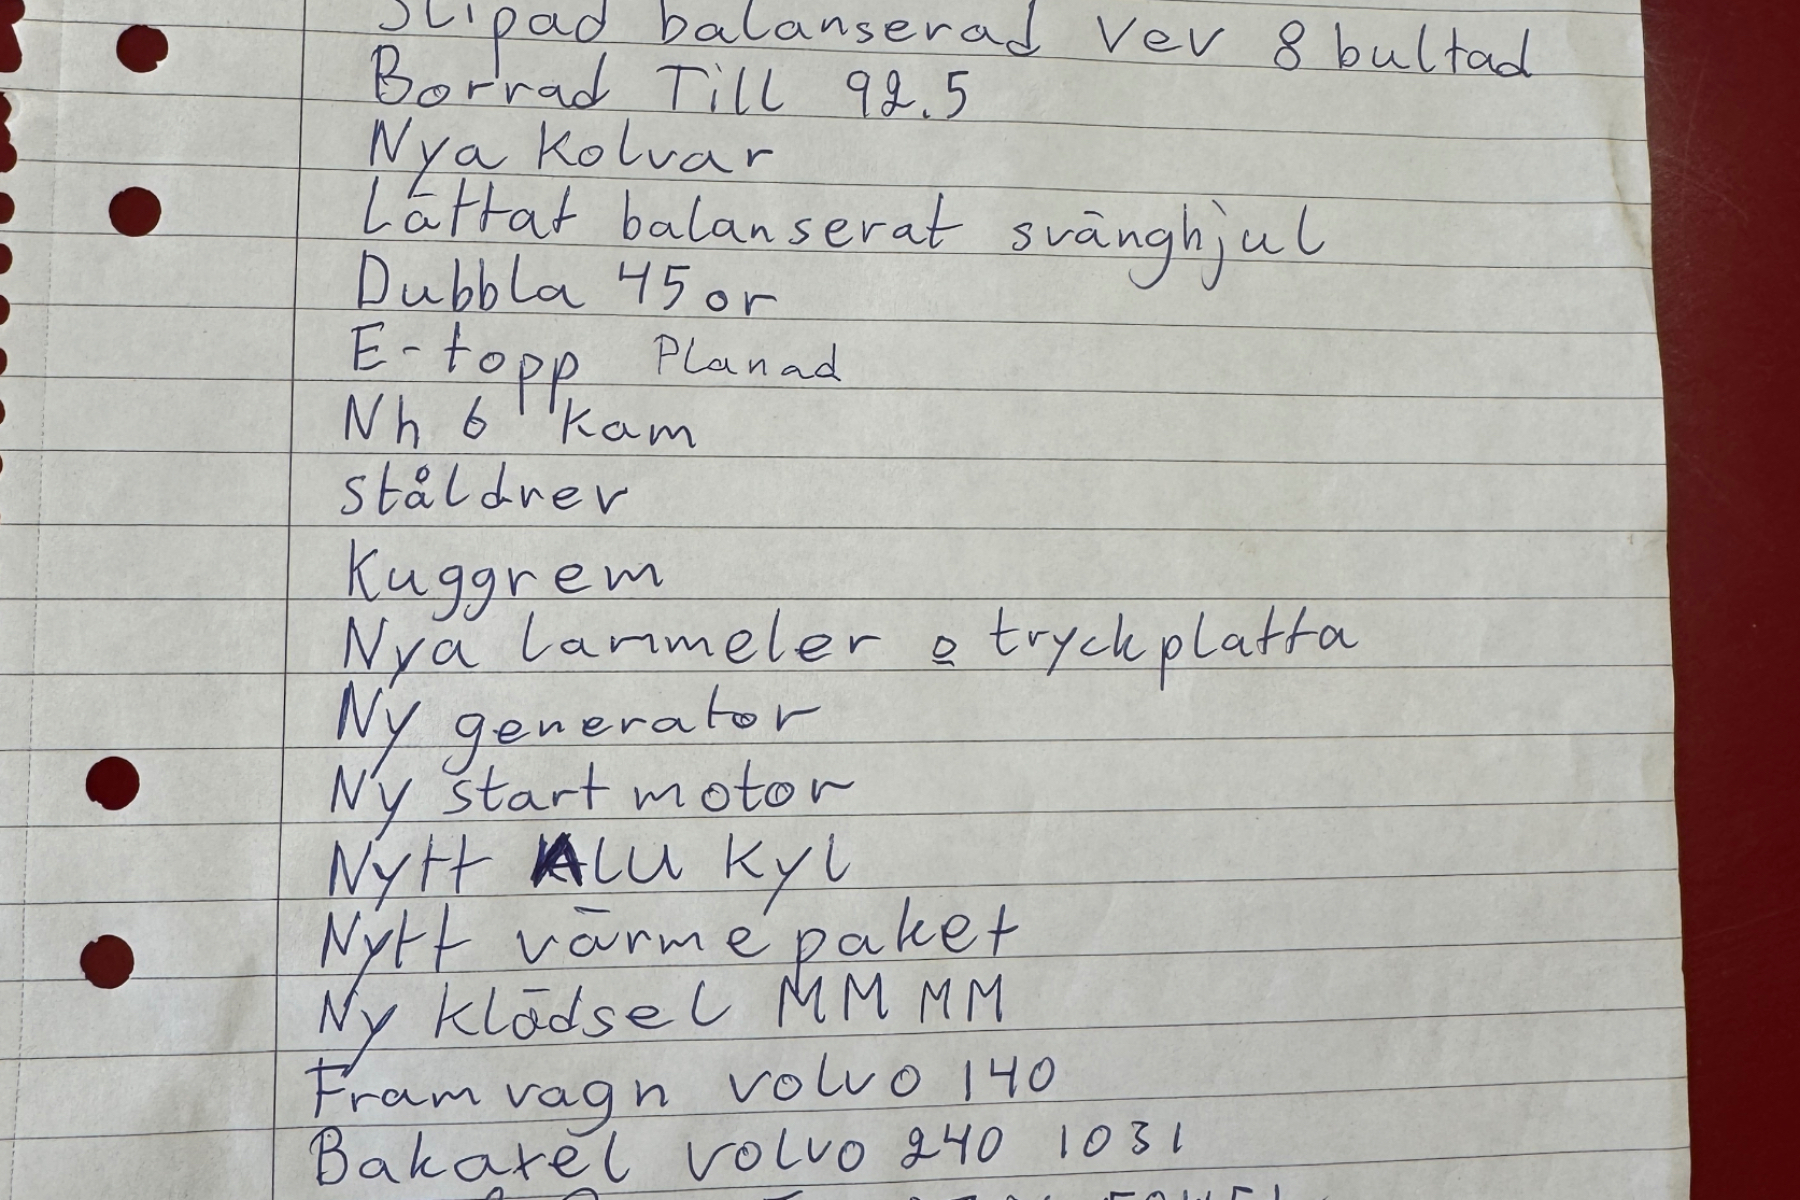 Slipad balanserad Vev 8 bultad
Borrad Till 92.5
Nya Kolvar
Lättat balanserat svänghjul
Dubbla 45or
E-topp Planad
Nh 6 Kam
ståldrev
Kuggrem
Nya lammeler o tryckplatta
Ny generator
Ny startmotor
Nytt ALU Kyl
Nytt värmepaket
Ny klädsel MMMM
Framvagn volvo 140
Bakaxel volvo 240 1031